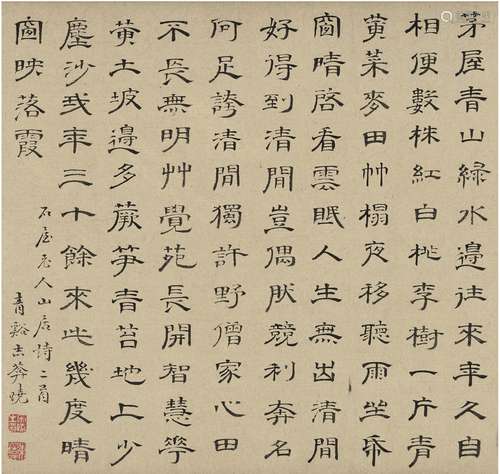 茅屋青山綠水邊往來年久自
相便數株紅白桃李樹一片青
黃菜麥田竹榻夜移聽雨坐帋
窗晴啓看雲眠人生無出清閒
好得到清閒豈偶肰競利奔名
何足誇清閒獨許野僧家心田
不長無明艸覺苑長開智慧華
黃土坡邊多蕨筍青苔地上少
塵沙我年三十餘來此幾度晴
窗映落霞
石屋老人山居詩二首
青谿